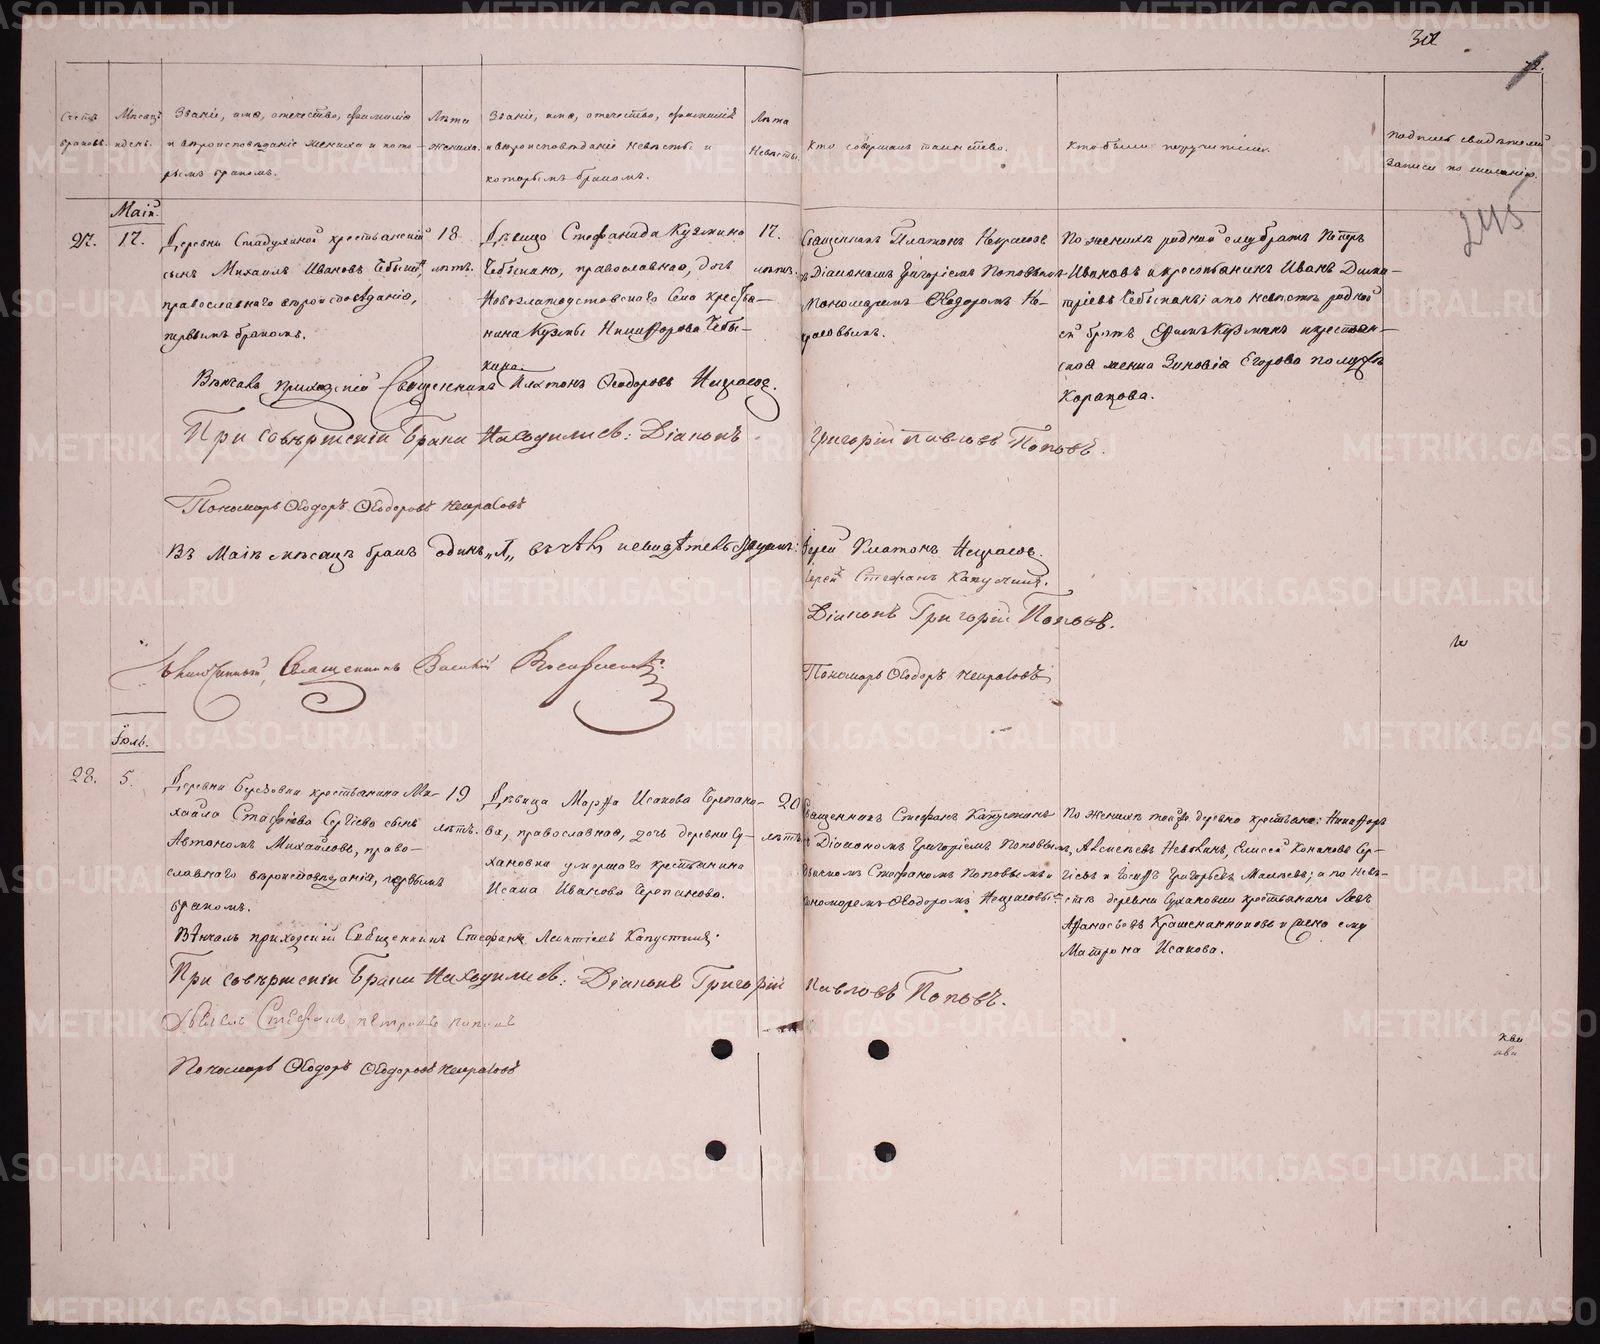 302
72.
Счетъ браковъ.
Мѣсяцъ и день.
Званіе, имя, отечество, фамилія
и вѣроисповѣданіе жениха и кото-
рымъ бракомъ.
Лѣта
жениха.
Званіе, имя, отечество, фамилія
и вѣроисповѣданіе невѣсты и
которымъ бракомъ.
Лѣта
невѣсты.
Кто совершалъ таинство.
Кто были поручители.
Подпись свидѣтелей
записи по желанію.
245
Маій.
27.
17.
Деревни Стадухиной крестьянскій
сынъ Михаилъ Ивановъ Чебыкинъ
православнаго вѣроисповѣданія,
первымъ бракомъ.
18
лѣтъ.
Дѣвица Стефанида Кузмина
Чебыкина, православная, дочь
Новозлатоустовскаго Села кресть-
янина Кузмы Никифорова Чебы-
кина.
17.
лѣтъ.
Священникъ Платонъ Некрасовъ
съ Діакономъ Григоріемъ Поповымъ
Пономаремъ Ѳеодоромъ Не-
красовымъ.
По женихѣ родной ему братъ Петръ
Ивановъ и крестьянинъ Иванъ Дими-
тріевъ Чебыкины; а по невѣстѣ родной
ей братъ Ефимъ Кузминъ и крестьян-
ская жена Зиновія Егорова по мужѣ
Карапова.
Вѣнчалъ приходскій Священникъ Платонъ Ѳеодоровъ Некрасовъ.
При совѣршеніи Брака Находились: Діаконъ Григорій Павловъ Поповъ.
Пономарь Ѳеодоръ Ѳеодоровъ Некрасовъ
Въ Маіѣ мѣсяцѣ бракъ одинъ „1„ въ чемъ и свидѣтельствуемъ: Іерей Платонъ Некрасовъ.
Іерей Стефанъ Капустинъ.
Діаконъ Григорій Поповъ.
Пономарь Ѳеодоръ Некрасовъ
Благочинный, Священникъ Василій
Іюль.
28.
5.
Деревни Березовки крестьянина Ми-
хайла Стафіева Сергіева сынъ
Автономъ Михайловъ, право-
славнаго вѣроисповѣданія, первымъ
бракомъ.
19
лѣтъ.
Дѣвица Марфа Исакова Черпано-
ва, православная, дочь деревни Су-
хановки умершаго крестьянина
Исака Иванова Черпанова.
20
лѣтъ
Священникъ Стефанъ Капустинъ
съ Діакономъ Григоріемъ Поповымъ,
Дьячкомъ Стефаномъ Поповымъ и
Пономаремъ Ѳеодоромъ Некрасовы-
По женихѣ той же деревни крестьяне: Никифоръ
Авсѣевъ Невѣкинъ, Елисей Конановъ Сер-
гіевъ и Іосифъ Григорьевъ Малѣевъ; а по невѣ-
стѣ деревни Сухановки крестьянинъ Левъ
Афанасьевъ Крашенинниковъ и жена ему
Матрона Исакова.
Вѣнчалъ приходскій Священникъ Стефанъ Леонтіевъ Капустинъ.
При совѣршеніи Брака Находились: Діаконъ Григорій Павловъ Поповъ.
Дьячекъ Стефанъ Петровъ Поповъ
Пономарь Ѳеодоръ Ѳеодоровъ Некрасовъ
METRIKI.GASO-URAL.RU